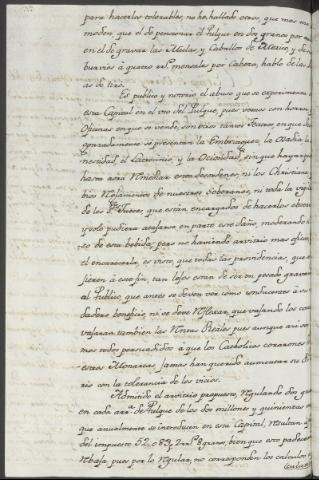 para hacerlos tolerables, no he hallado otros, que mas me
moden, que el de pensionar el Pulque en dos granos por
en el de gravar las Mulas, y Caballos de Mexico, y de
burrios à quatro rrs. mensales por Cabeza, hablo de las
as de tiro.
Es publico y notorio el abuso que se experimenta
esta Capital en el uso del Pulque, pues vemos con horror
Oficinas en que se vende, son otros tantos Teatros en que
gonzadamente se presentan la Embriaguez, la Osadia, la
nestidad, el Lacrocinio, y la Ociosidad, sin que hayan
hasta aora à estos desordenes, ni los Christian
bios Reglamentos de nuestros Soberanos, ni toda la vigi
de los Sres. Jueces, que están encargados de hacerlos observar
y solo pudiera atajarse en parte este daño, moderando
so de esta bebida, pero no haviendo arvitrio mas eficaz
el encarecerla, es visto, que todas las providencias, que
fieren à este fin, tan lejos están de ser un pecado gravamen
al Publico, que antes se deven ver como conducentes à su
dadero beneficio, ni se deve recelar, que vajando los con
vajaran tambien las Rentas Reales pues aunque asi
mos todos persuadidos à que los Catholicos corazones
estros Monarcas jamas han querido aumentar su
rio con la tolerancia de los vicios.
Admitido el arvitrio propuesto, Regulando dos gra
en cada arra. de Pulque de los dos millones y quinientas
que anualmente se introducen en esta Capital, Resultan
del impuesto 52.083 ps. 2 rrs. 8 granos, bien que esto padece
Rebaja, pues por lo Regular, no corresponden los calculos